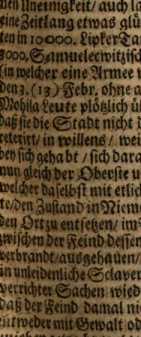 den Uneinigkeit/ auch la
eine Zeitlang etwas glü
ten in 10000. Lipker Ta
3000. Samuelecwitzisch
(in welcher eine Armee v
den 3. (13) Febr. ohne a
Mohila Leute plötzlich üb
daß sie die Stadt nicht d
reterirt/ in willens/ wei
bey sich gehabt / sich dara
nun gleich der Oberste u
welcher daselbst mit etlich
te/ den Zustand in Niem
den Ort zu entsetzen/ im
zwischen der Feind dessen
verbrandt/ ausgehauen/
in unleidenliche Sclavery
verrichter Sachen wied
daß der Feind damal nie
mit weder mit Gewalt od